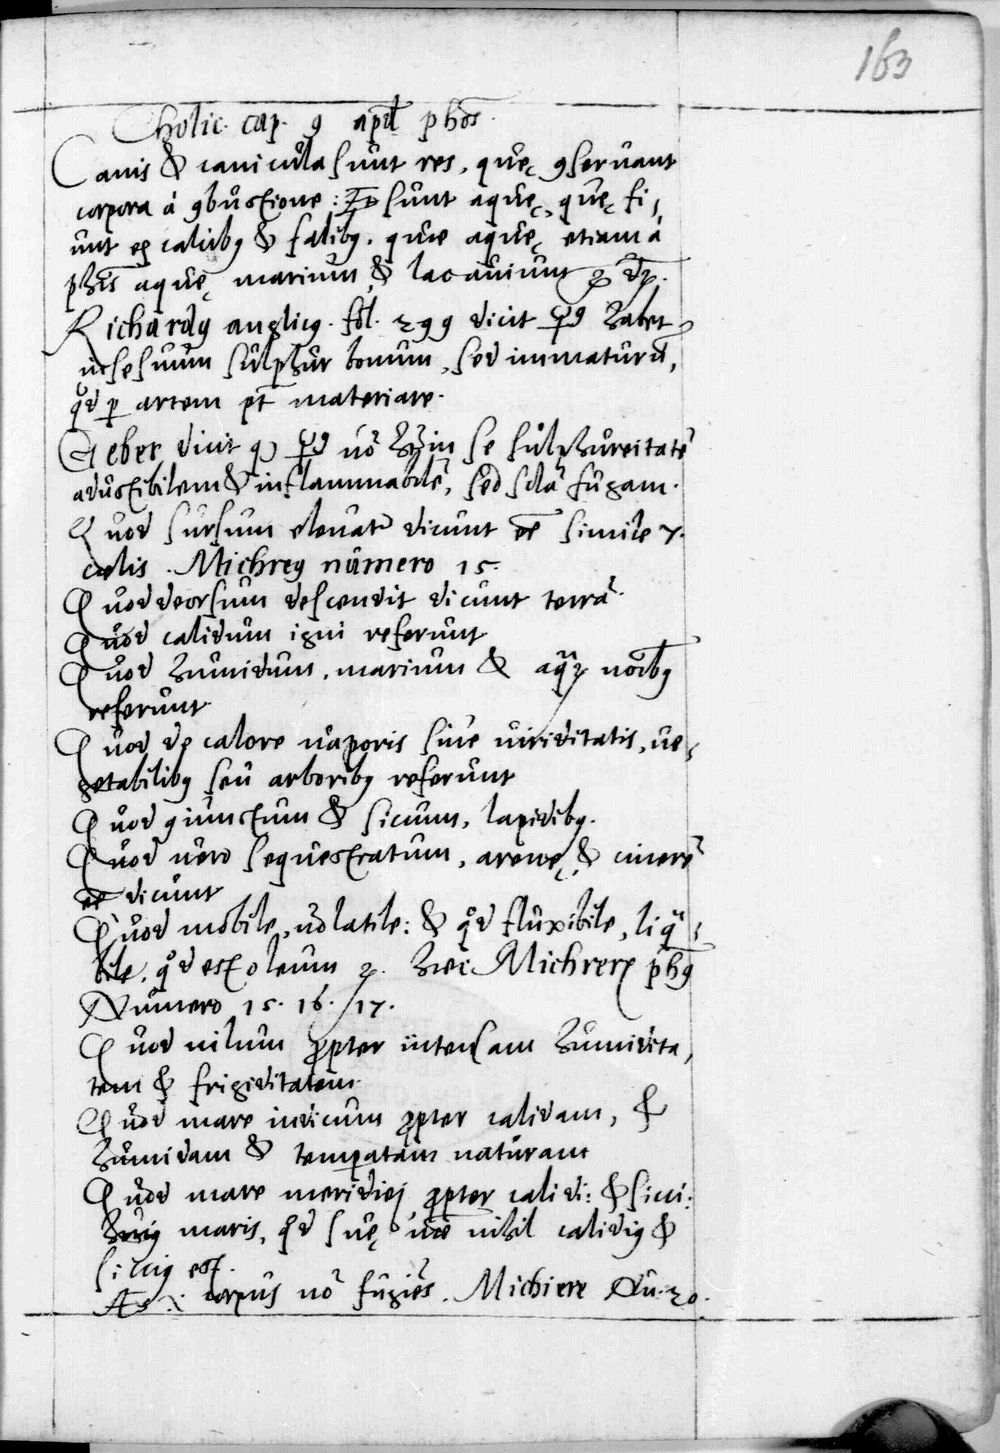 163
Cholic. cap. 9 apd phos.
Canis & canicula sunt res, quę 9servant
corpora à 9bustione: Id sunt aquę, quę fi,
unt ex calcibꝯ & salibꝯ. quae aquę etiam à
phis aquę marium & lac avium
Richardꝯ anglicꝯ. fol. 299 dicit habet
in se suum sulphur bonum, sed immaturū,
qd p artem pt materiare.
Geber dicit q nō in se sulphureitatē
adustibilem & inflammabilē, sed solā fugam.
Quod sursum elevatr dicunt ee simile
cælis. Michreꝯ numero 15.
Quod deorsum descendit dicunt terrā.
Quod calidum igni referunt
Quod humidum, marium & noibꝯ
referunt
Quod de calore vaporis sive viriditatis, ve,
getabilibꝯ seu arboribꝯ referunt
Quod 9iunctum & siccum, lapidibꝯ.
Quod vero sequestratum, arenę, & cinerē
ee dicunt
Quod mobile, volatile: & qd fluxibile, liqa,
bile, qd est oleum haec phꝯ
Numero 15. 16. 17.
Quod nilum ppter intensam humidita,
tem & frigiditatem.
Quod mare indicum ppter calidam, &
humidam & temperatam naturam
Quod mare meridiei ppter calidi: & sicci:
maris, qd suę vae nihil calidiꝯ &
sicciꝯ est.
corpus nō fugiēs. Nu. 20.